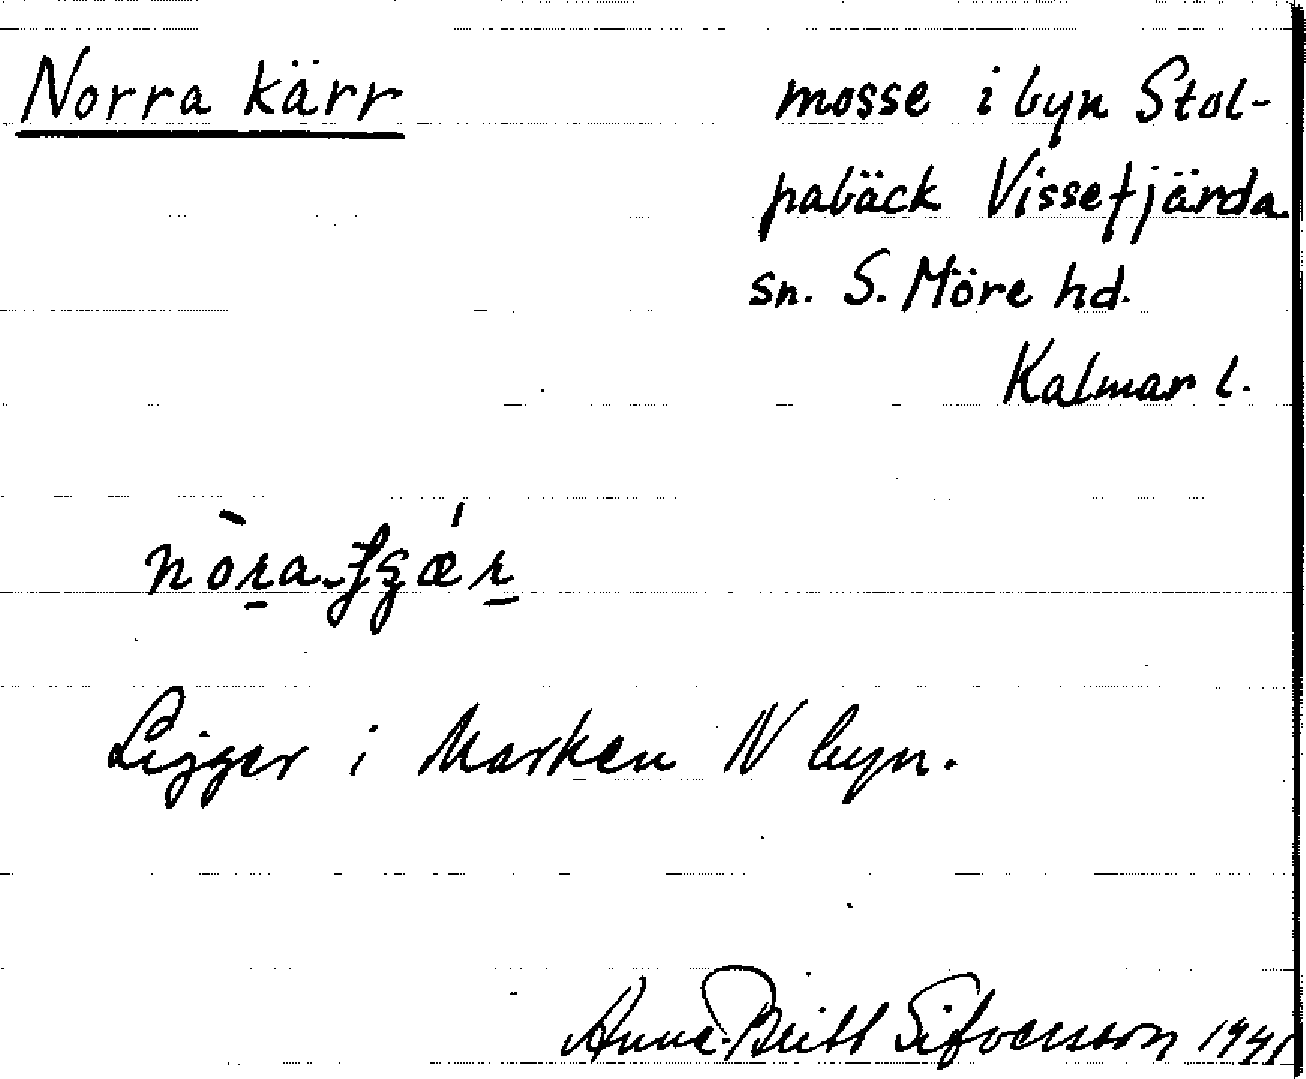 Norra kärr
mosse i byn Stol-
pabäck Vissefjärda
sn. S. Möre hd.
Kalmar l.
Ligger i Marken N byn.
Anna-Britt Sifversson 1941